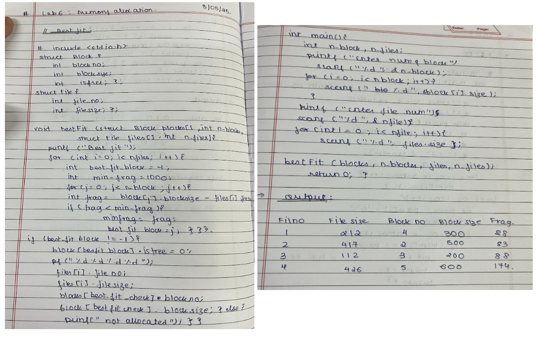 # Lab 6 : Memory allocation
// Best fit
# include <stdio.h>
struct Block {
int block no;
int block size;
int isfree; };
struct file {
int file no;
int file size; };
void bestFit (struct Block blocks[], int n.blocks,
struct file files[], int n.files){
printf ("Best fit");
for (int i=0; i< nfiles; i++){
int best-fit_block = -1;
int min-frag = 1000;
for (j=0; j< n.block; j++){
int frag = block[j].blocksize - files[i].
if (frag < min.frag){
minfrag = frag;
best fit block = j; } } }
if (best-fit block != -1){
block[bestfit block].isfree = 0;
pf("%d %d %d %d");
files[i].file no;
files[i].filesize;
blocks[best-fit_check] block no;
block[best fit check].block size; } else {
printf(" not allocated"); } }
int main(){
int n.block, n.files;
printf ("enter num of block");
scanf ("%d", &n.block);
for (i=0; i< n.block; i++){
scanf ("%d", &block[i].size);
}
printf ("enter file num"){
scanf ("%d", & nfile){
for (int i=0; i< nfile; i++){
scanf ("%d", files.size };
bestFit (blocks, n.blocks, files, n.files);
return 0; }
→ output:
File no File size Block no Block size Frag.
1 212 4 300 88
2 417 2 500 83
3 112 3 200 88
4 426 5 600 174.